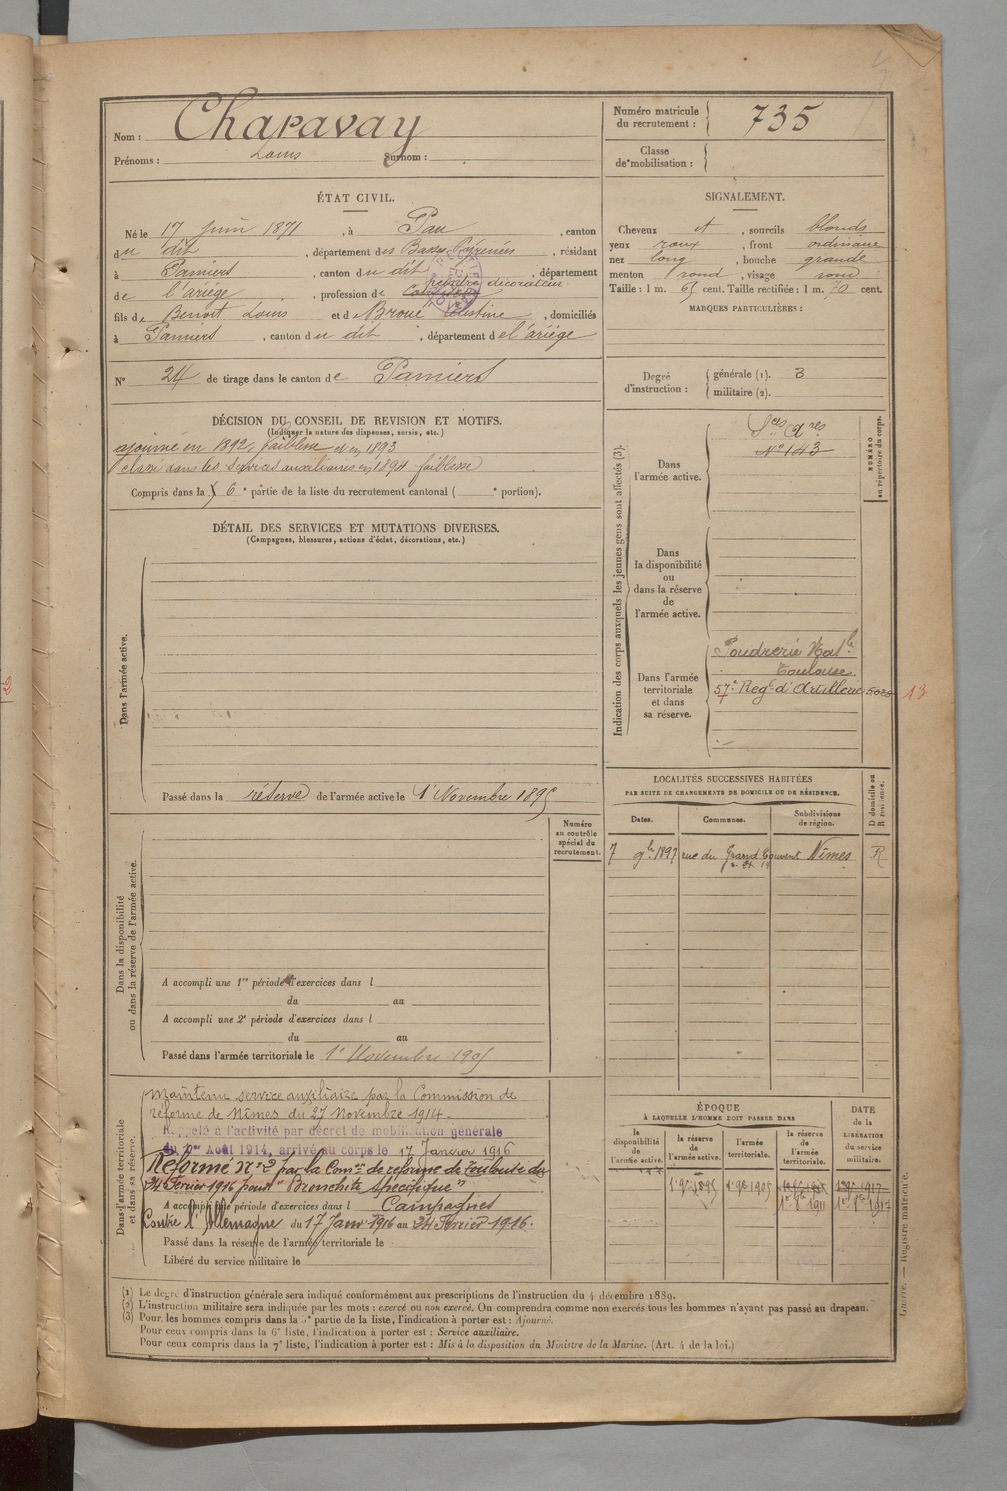 Nom : Charavay
Prénoms : Louis Surnom :
Numéro matricule du recrutement : 735
Classe de mobilisation :
ÉTAT CIVIL.
Né le 17 juin 1871, à Pau, canton
du dit, département des Basses Pyrénées, résidant
à Pamiers, canton du dit, département
de l'ariége, profession de peintre décorateur
fils de Benoit Louis et de Broue Célestine, domiciliés
à Pamiers, canton du dit, département de l'ariége
N° 24 de tirage dans le canton de Pamiers
SIGNALEMENT.
Cheveux et, sourcils blonds
yeux roux, front ordinaire
nez long, bouche grande
menton rond, visage rond
Taille : 1 m. 65 cent. Taille rectifiée : 1 m. 70 cent.
MARQUES PARTICULIÈRES :
Degré d'instruction : générale (1). 3
militaire (2).
DÉCISION DU CONSEIL DE REVISION ET MOTIFS.
(Indiquer la nature des dispenses, sursis, etc.)
ajourné en 1892, faiblesse et en 1893
classé dans les services auxiliaires en 1894 faiblesse
Compris dans la 6e partie de la liste du recrutement cantonal ( e portion).
DÉTAIL DES SERVICES ET MUTATIONS DIVERSES.
(Campagnes, blessures, actions d'éclat, décorations, etc.)
Dans l'armée active.
Passé dans la réserve de l'armée active le 1r Novembre 1895
Indication des corps auxquels les jeunes gens sont affectés (3).
NUMÉRO au répertoire du corps.
Dans l'armée active.
Sces Ares
N° 143
Dans la disponibilité ou dans la réserve de l'armée active.
Dans l'armée territoriale et dans sa réserve.
Poudrerie Natle
Toulouse
57e Regt d'Artillerie 13
LOCALITÉS SUCCESSIVES HABITÉES
PAR SUITE DE CHANGEMENTS DE DOMICILE OU DE RÉSIDENCE.
D domicile ou R résidence.
Dates. Communes. Subdivisions de région.
7 9bre 1897 rue du Grand Couvent Nîmes R
Numéro au contrôle spécial du recrutement.
Dans la disponibilité ou dans la réserve de l'armée active.
A accompli une 1re période d'exercices dans l
du au
A accompli une 2e période d'exercices dans l
du au
Passé dans l'armée territoriale le 1r Novembre 1905
Dans l'armée territoriale et dans sa réserve.
Maintenu service auxiliaire par la Commission de
réforme de Nîmes du 27 Novembre 1914.
Rappelé à l'activité par décret de mobilisation générale
du 1er Août 1914, arrivé au corps le 17 Janvier 1916
Réformé N° 2 par la Comon de réforme de Toulouse du
24 Février 1916 pour "Bronchite spécifique"
A accompli période d'exercices dans l
Campagnes
Contre l'Allemagne du 17 Janv 1916 au 24 Février 1916.
Passé dans la réserve de l'armée territoriale le
Libéré du service militaire le
ÉPOQUE
À LAQUELLE L'HOMME DOIT PASSER DANS
DATE DE LA LIBÉRATION DU SERVICE MILITAIRE.
la disponibilité de l'armée active. la réserve de l'armée active. l'armée territoriale. la réserve de l'armée territoriale.
1r 9e 1895 1r 9e 1905
1r 8e 1911 1r 8e 1917
(1) Le degré d'instruction générale sera indiqué conformément aux prescriptions de l'instruction du 4 décembre 1889.
(2) L'instruction militaire sera indiquée par les mots : exercé ou non exercé. On comprendra comme non exercés tous les hommes n'ayant pas passé au drapeau.
(3) Pour les hommes compris dans la 5e partie de la liste, l'indication à porter est : Ajourné.
Pour ceux compris dans la 6e liste, l'indication à porter est : Service auxiliaire.
Pour ceux compris dans la 7e liste, l'indication à porter est : Mis à la disposition du Ministre de la Marine. (Art. 4 de la loi.)
Guerre. — Registre matricule.